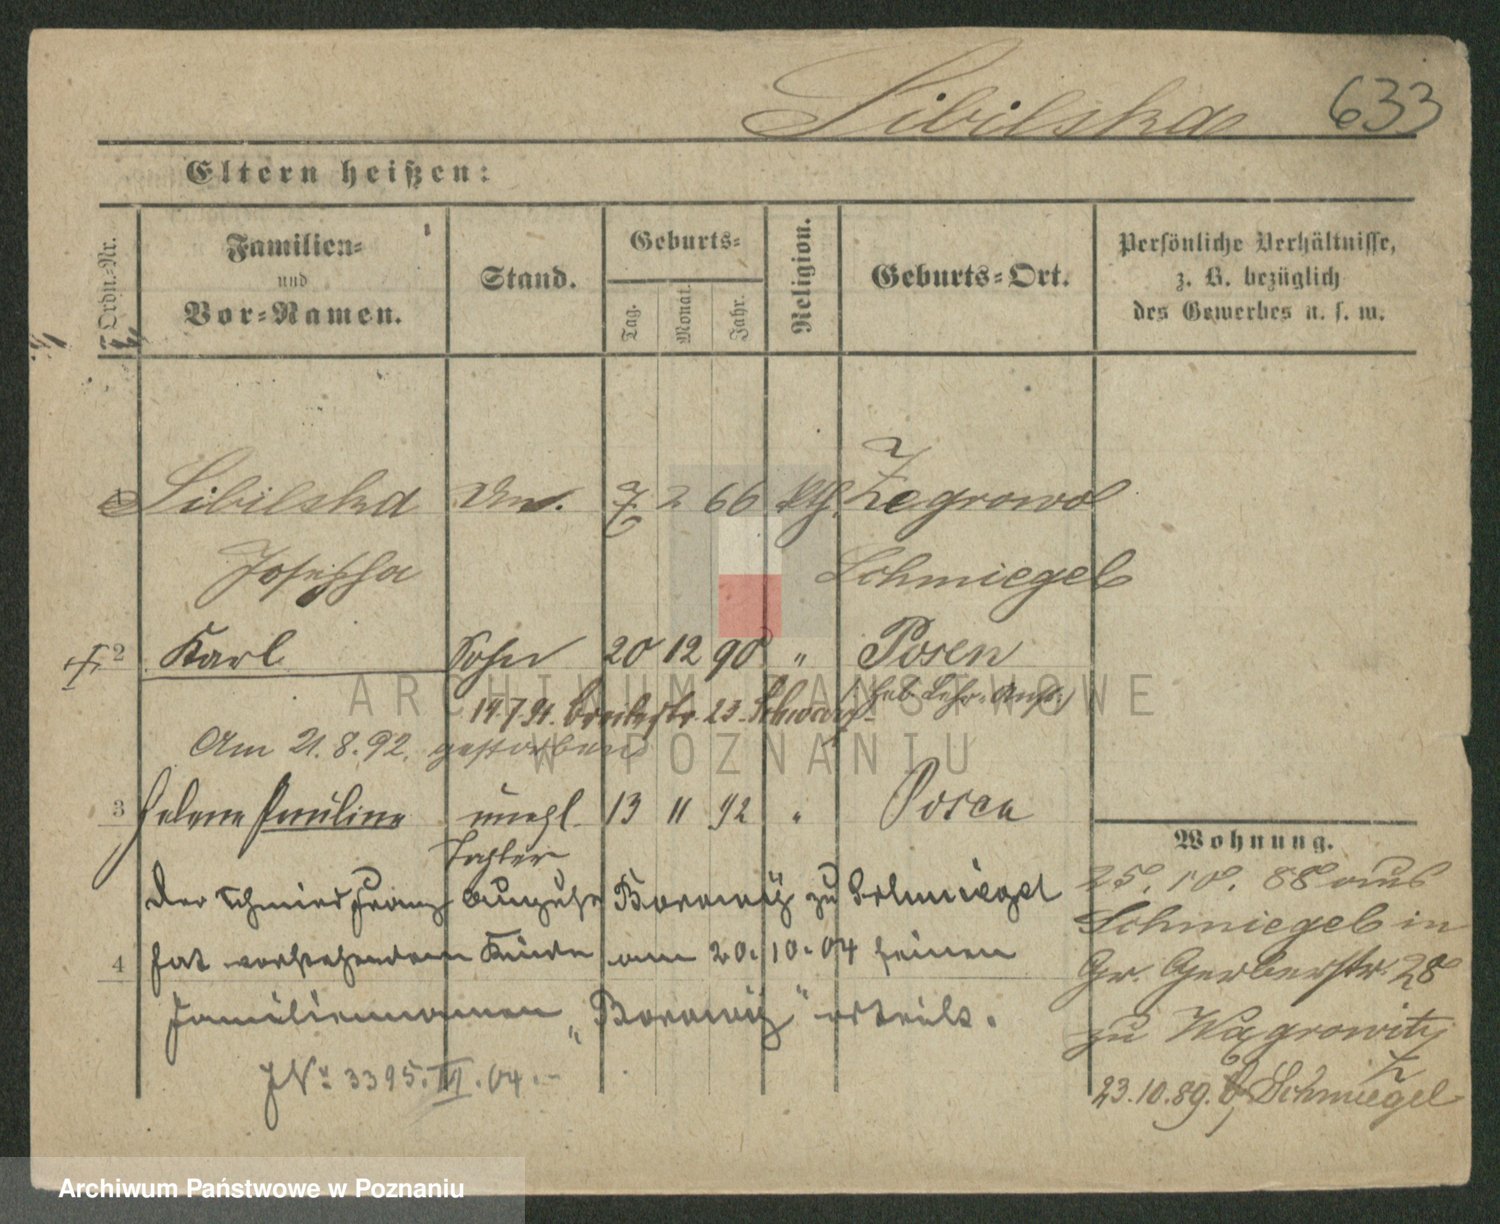 Sibilska 633
Eltern heißen:
Ordn.-Nr.
Familien-
und
Vor-Namen.
Stand.
Geburts-
Tag.
Monat.
Jahr.
Religion.
Geburts-Ort.
Persönliche Verhältnisse,
z. B. bezüglich
des Gewerbes u. s. w.
1 Sibilska 7 2 66 kth. Zegrowo
Josepha Schmiegel
2 Karl Sohn 20 12 90 " Posen
14.7.91. Breitestr. 23 (Heb. Lehr-Anst.)
Am 21.8.92. gestorben
3 Helene Pauline unehl. 13 11 92 " Posen
Tochter
Der Schmied Franz August Borowicz zu Schmiegel
4 hat vorstehendem Kinde am 20.10.04 seinen
Familiennamen „Borowicz" erteilt.
JN° 3395. III. 04.
Wohnung.
25. 10. 88 aus
Schmiegel in
Gr. Gerberstr. 28
zu Wagrowitz
23.10.89. Schmiegel
ARCHIWUM PAŃSTWOWE
W POZNANIU
Archiwum Państwowe w Poznaniu